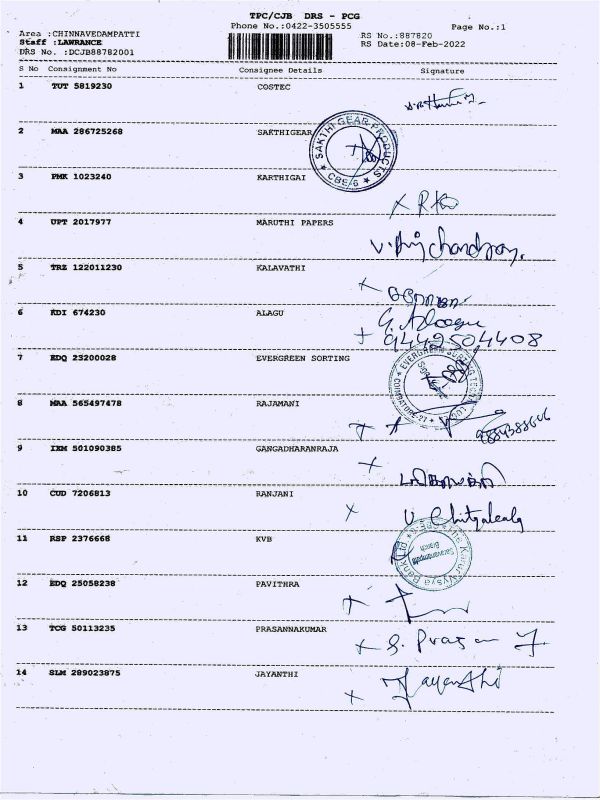 TPC/CJB DRS - PCG
Phone No.:0422-3505555
Page No.:1
Area :CHINNAVEDAMPATTI
RS No.:887820
Staff :LAWRANCE
RS Date:08-Feb-2022
DRS No. :DCJB88782001
S No Consignment No Consignee Details Signature
1 TUT 5819230 COSTEC
2 MAA 286725268 SAKTHIGEAR
SAKTHI GEAR PRODUCTS
CBE-6
3 PMK 1023240 KARTHIGAI
4 UPT 2017977 MARUTHI PAPERS
5 TRZ 122011230 KALAVATHI
6 KDI 674230 ALAGU
9442504408
7 EDQ 23200028 EVERGREEN SORTING
EVERGREEN
COIMBATORE
8 MAA 565497478 RAJAMANI
9 IXM 501090385 GANGADHARANRAJA
10 CUD 7206813 RANJANI
11 RSP 2376668 KVB
The Karur Vysya Bank Ltd
Saravanampatti
Branch
12 EDQ 25058238 PAVITHRA
13 TCG 50113235 PRASANNAKUMAR
14 SLM 289023875 JAYANTHI
Jayanthi